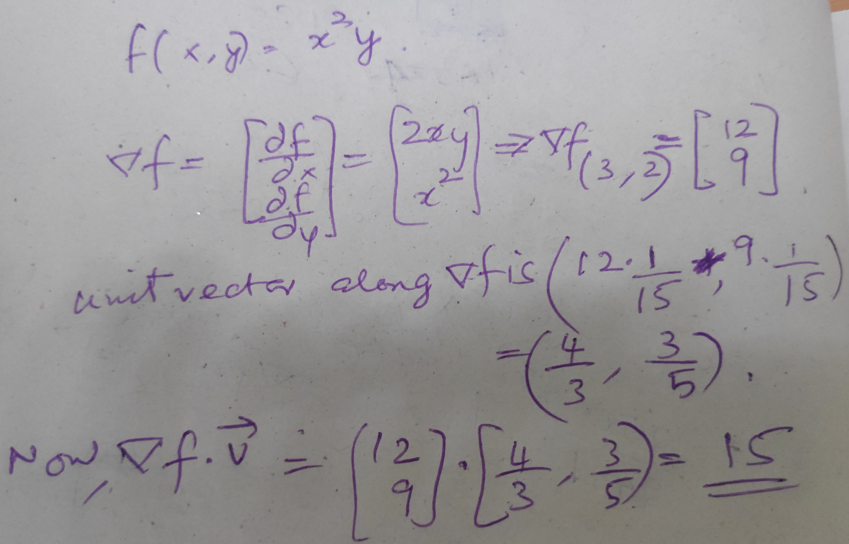 f(x,y) = x²y.
∇f = [∂f/∂x ∂f/∂y] = [2xy x²] ⇒ ∇f(3,2) = [12 9].
unit vector along ∇f is (12·1/15, 9·1/15)
= (4/3, 3/5).
Now, ∇f·v⃗ = [12 9]·[4/3, 3/5) = 15